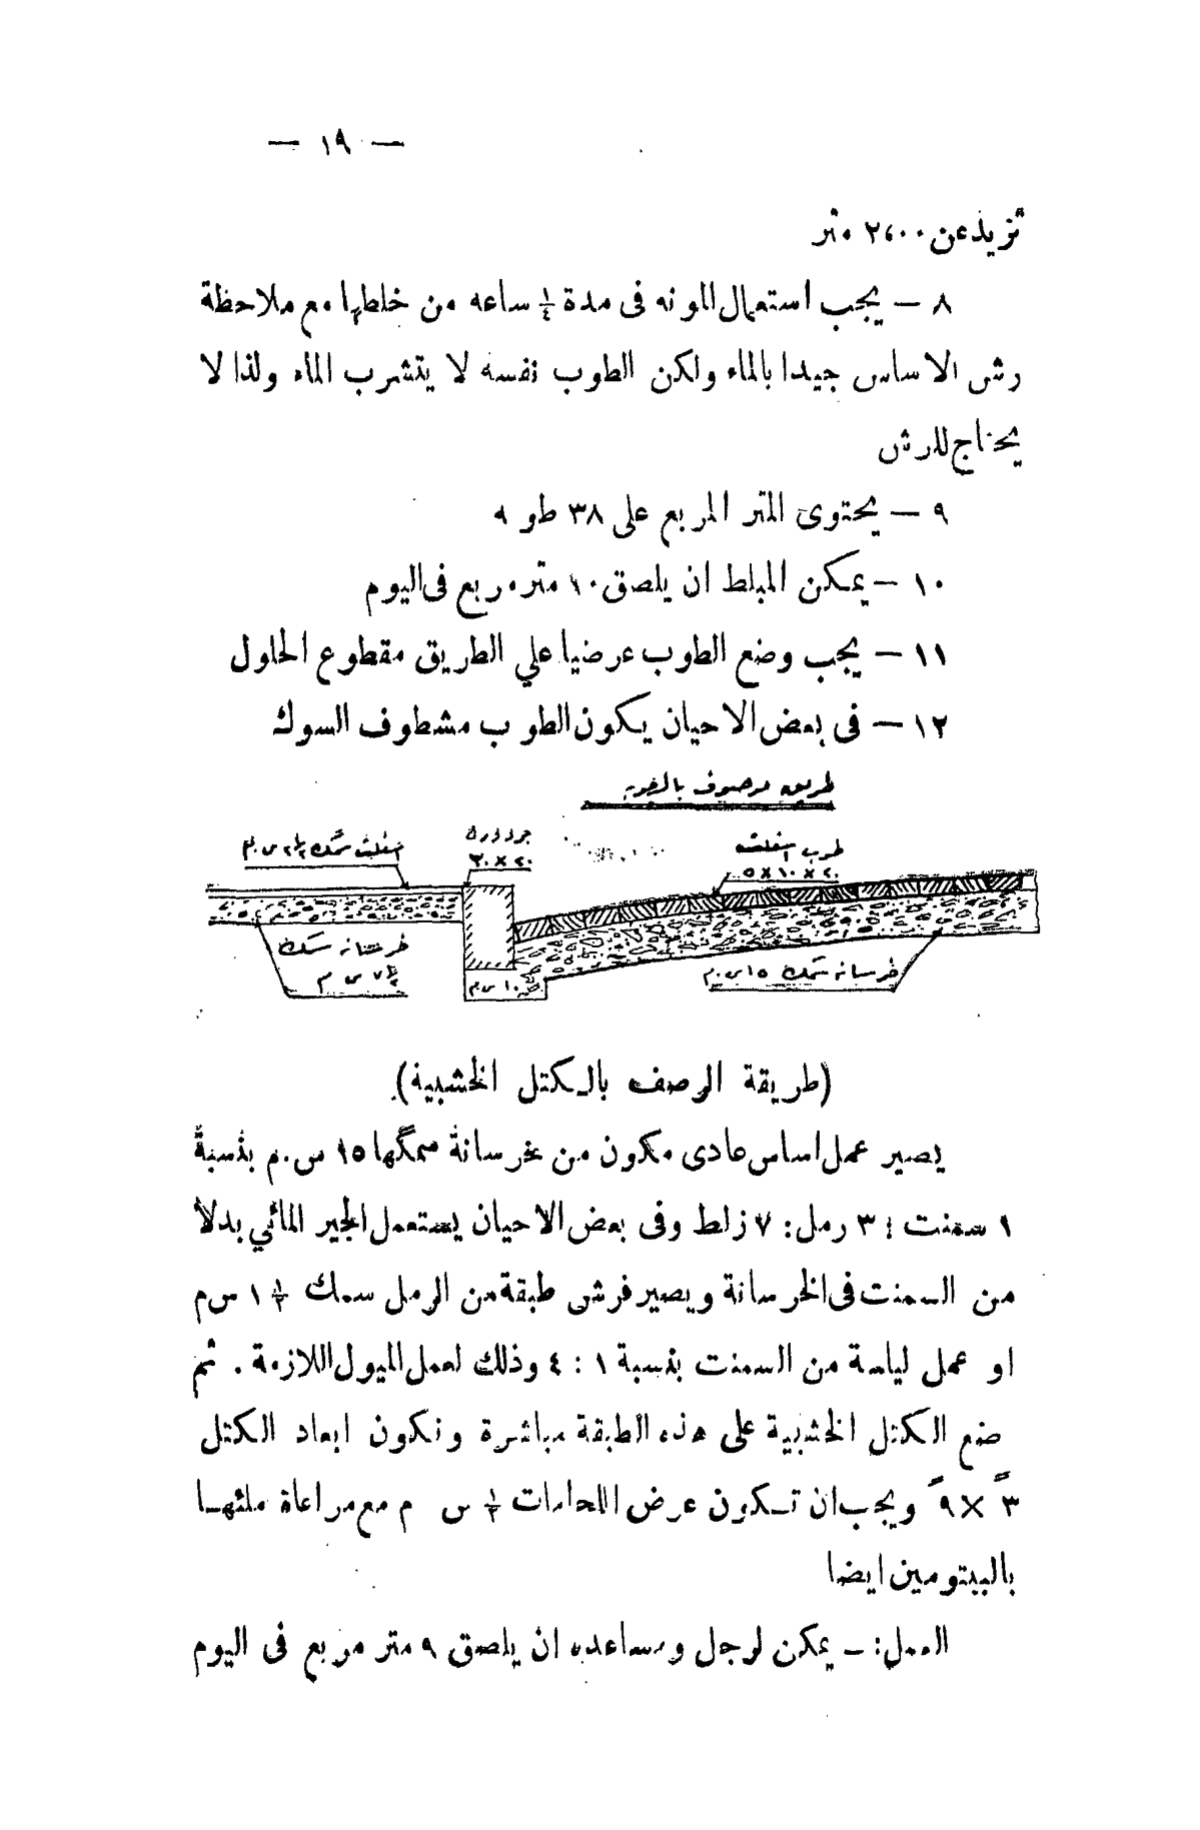 — ١٩ —
تزيد عن ٢،٠٠ متر
٨ — يجب استعمال المونه فى مدة ¼ ساعه من خلطها مع ملاحظة
رش الاساس جيدا بالماء ولكن الطوب نفسه لا يتشرب الماء ولذا لا
يحتاج للرش
٩ — يحتوى المتر المربع على ٣٨ طوبه
١٠ — يمكن المبلط ان يلصق ١٠ متر مربع فى اليوم
١١ — يجب وضع الطوب عرضيا علي الطريق مقطوع الحلول
١٢ — فى بعض الاحيان يكون الطوب مشطوف السوك
طريق مرصوف بالطوب
طوب اسفلت
٢٠ × ١٠ × ٥
بردورة
٣٠ × ٢٠
اسفلت سمك ٢½ س.م
خرسانه سمك
٧½ س م
١٠ س.م
خرسانه سمك ١٥ س.م
(طريقة الرصف بالكتل الخشبية).
يصير عمل اساس عادى مكون من خرسانة سمكها ١٥ س.م بنسبة
١ سمنت : ٣ رمل : ٧ زلط وفى بعض الاحيان يستعمل الجير المائي بدلا
من السمنت فى الخرسانة ويصير فرش طبقة من الرمل سمك ١½ س م
او عمل لياسة من السمنت بنسبة ١ : ٤ وذلك لعمل الميول اللازمة . ثم
ضع الكتل الخشبية على هذه الطبقة مباشرة وتكون ابعاد الكتل
٣ً × ٩ً ويجب ان تكون عرض اللحامات ½ س م مع مراعاة ملئها
بالبيتومين ايضا
العمل : – يمكن لرجل ومساعده ان يلصق ٩ متر مربع فى اليوم